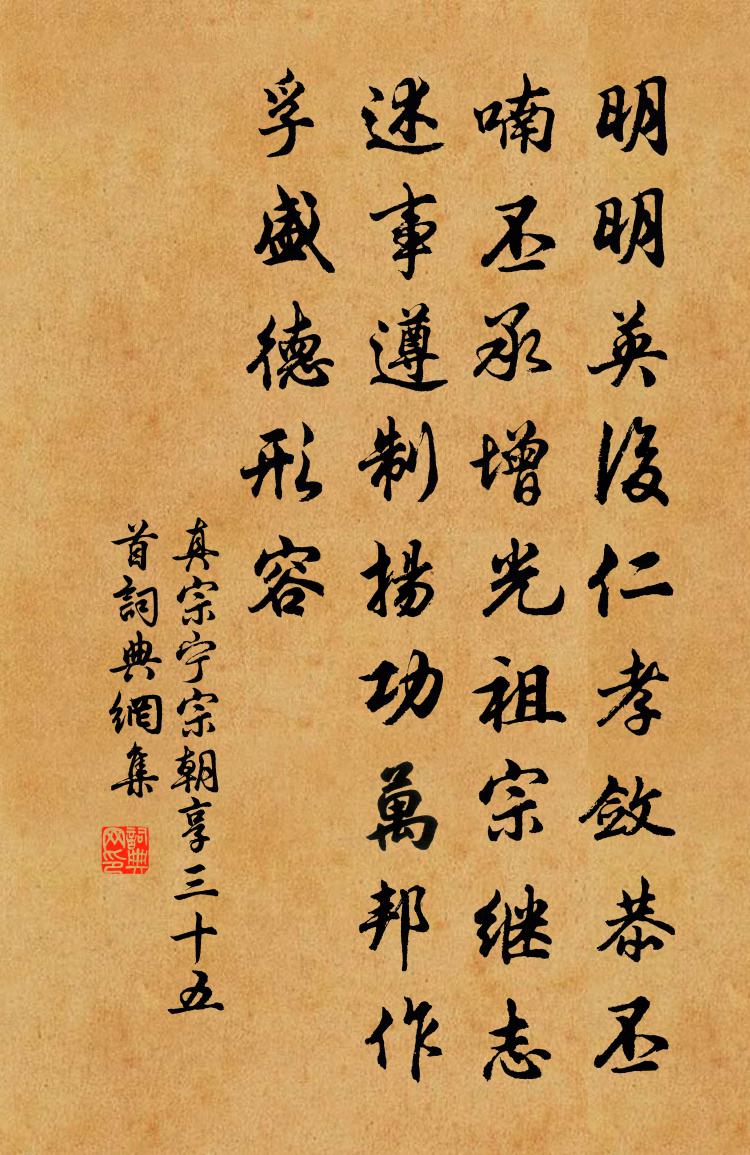 明明英後仁孝斂恭丕
喃丕承增光祖宗继志
述事遵制揚功萬邦作
孚盛德形容
真宗宁宗朝享三十五
首詞典網集
詞典
网印